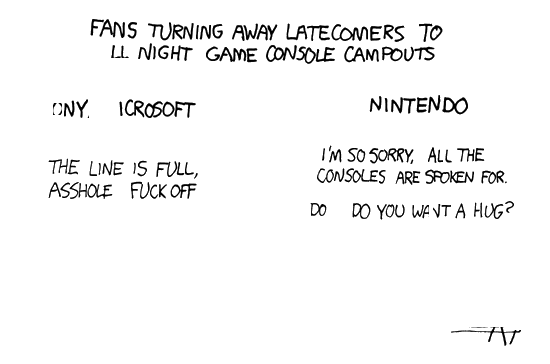 FANS TURNING AWAY LATECOMERS TO
LL NIGHT GAME CONSOLE CAMPOUTS
ONY. ICROSOFT
NINTENDO
THE LINE IS FULL,
ASSHOLE FUCK OFF
I'M SO SORRY, ALL THE
CONSOLES ARE SPOKEN FOR.
DO DO YOU WANT A HUG?